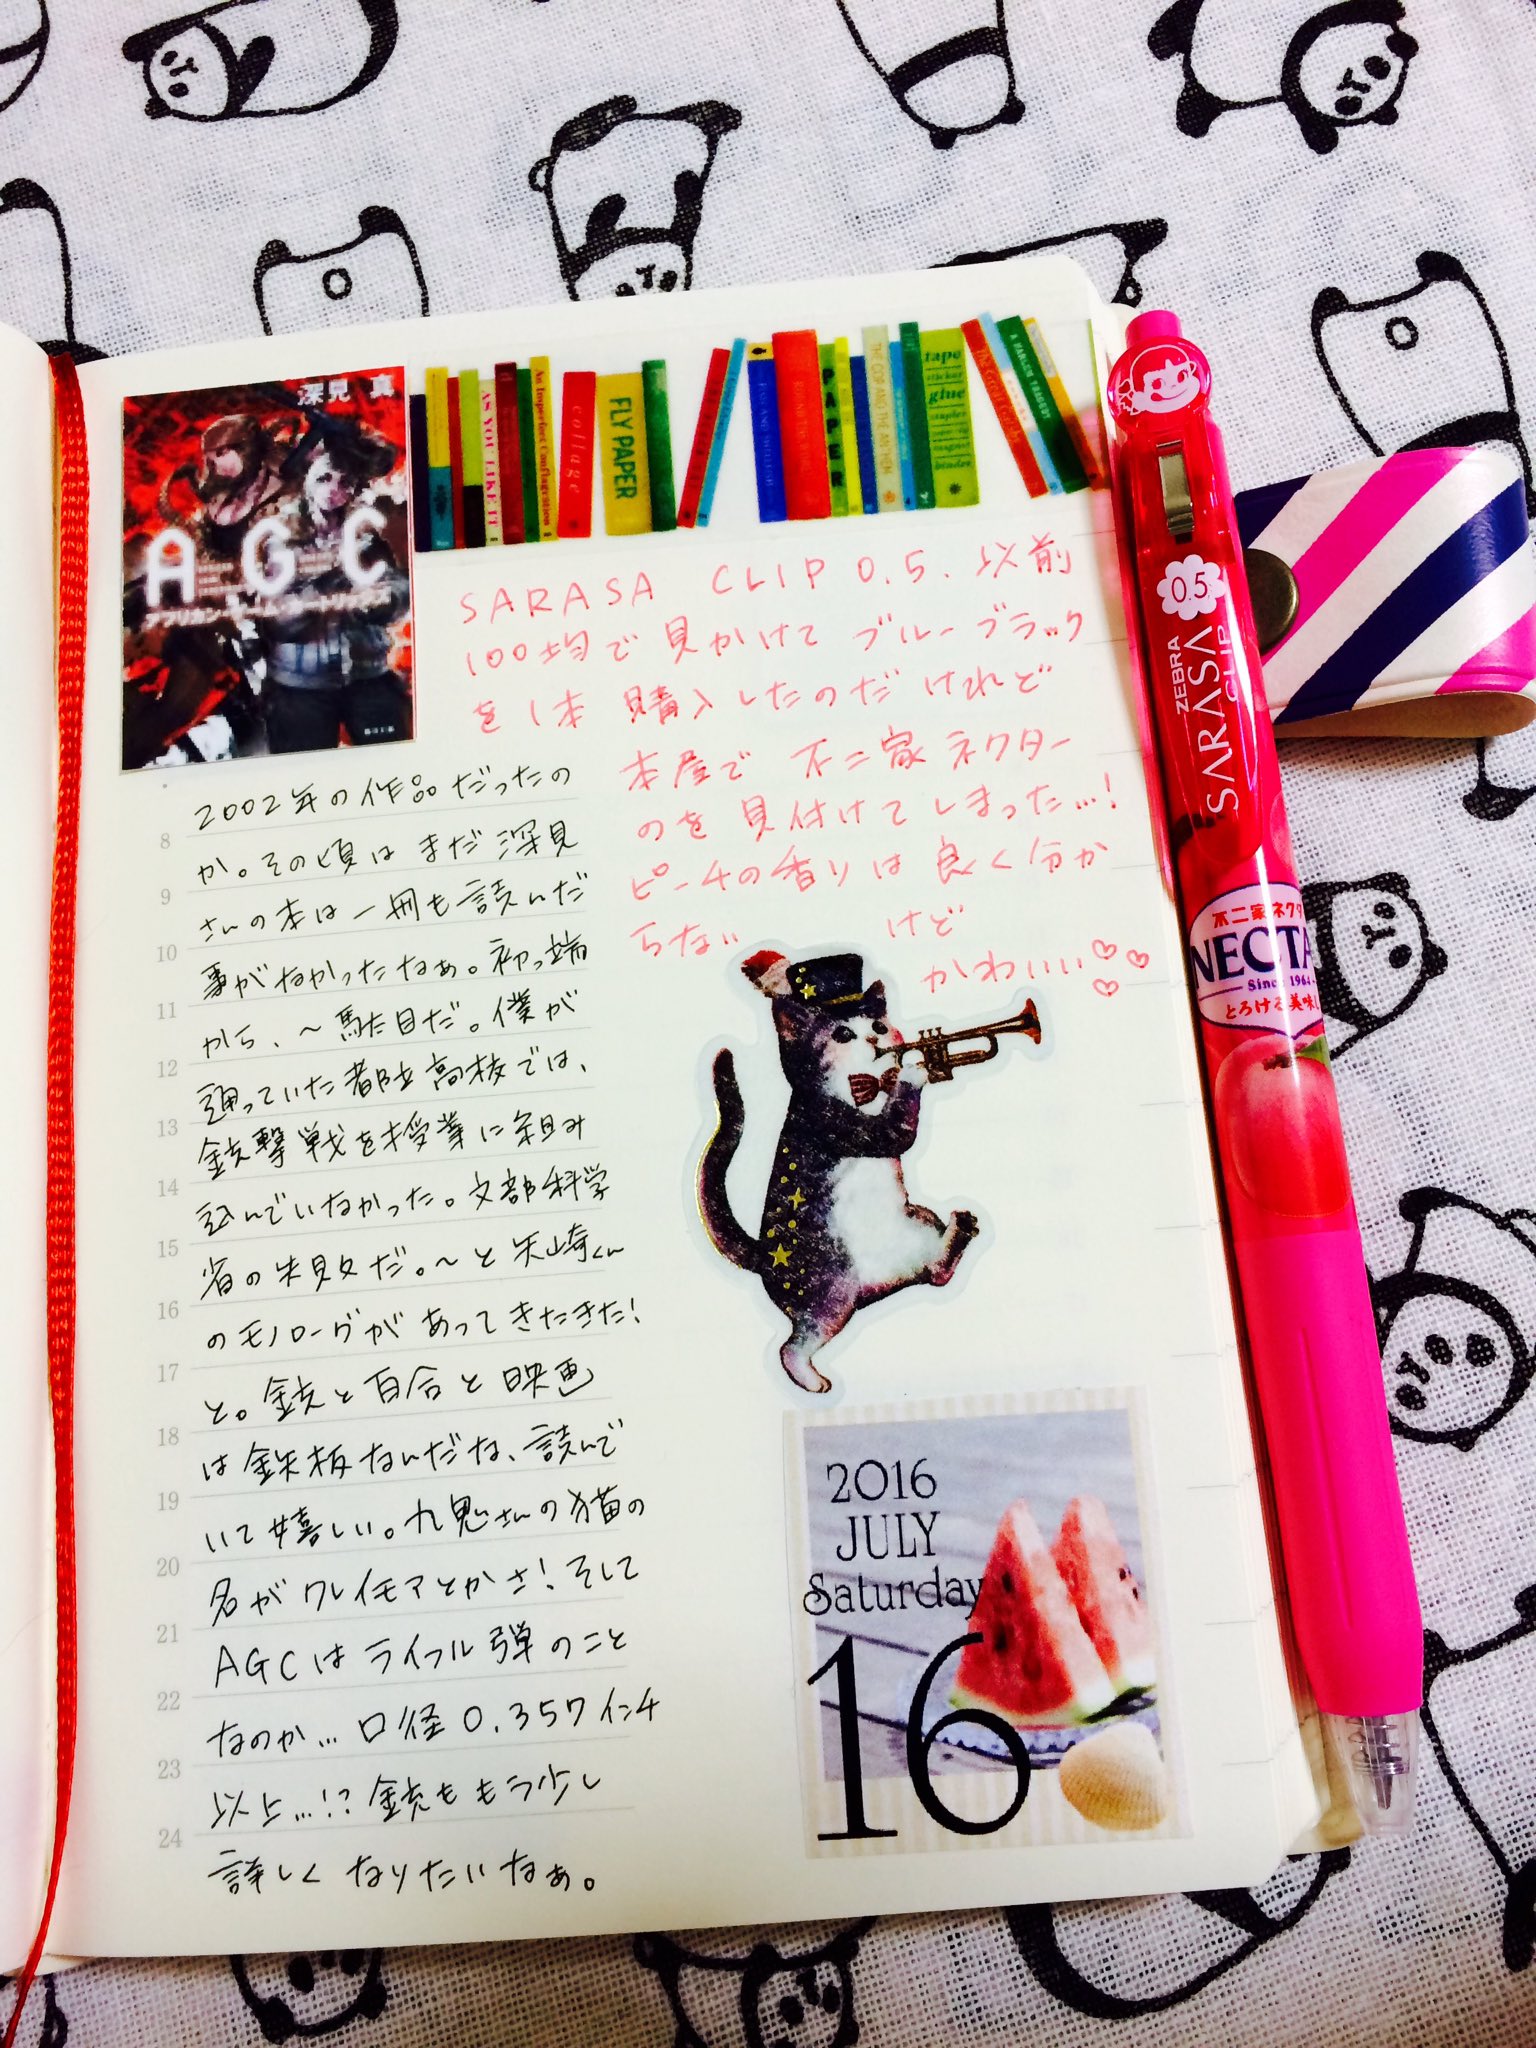 深見 真
AGC
アフリカン・ゲーム・カートリッジズ
AS YOU LIKE IT
An Imperfect Conflagration
collage
FLY PAPER
PAPER
THE COP AND THE ANTHEM
tape
sticker
glue
stapler
binder
A HARLEM TRAGEDY
SARASA CLIP 0.5. 以前
100均で見かけてブルーブラック
を1本 購入したのだけれど
本屋で 不二家ネクター
のを見付けてしまった…!
ピーチの香りは良く分か
らない けど
かわいい♡♡♡
2002年の作品だったの
か。その頃はまだ深見
さんの本は一冊も読んだ
事がなかったなぁ。初っ端
から、〜駄目だ。僕が
通っていた都立高校では、
銃撃戦を授業に組み
込んでいなかった。文部科学
省の失敗だ。〜と矢崎くん
のモノローグがあってきたきた!
と。銃と百合と映画
は鉄板なんだな、読んで
いて嬉しい。九鬼さんの猫の
名がクレイモアとかさ!そして
AGCはライフル弾のこと
なのか…口径0.357インチ
以上…!?銃ももう少し
詳しくなりたいなぁ。
8
9
10
11
12
13
14
15
16
17
18
19
20
21
22
23
24
2016
JULY
Saturday
16
0.5
ZEBRA
SARASA
CLIP
不二家ネクタ
NECTA
Since 1964
とろける美味し